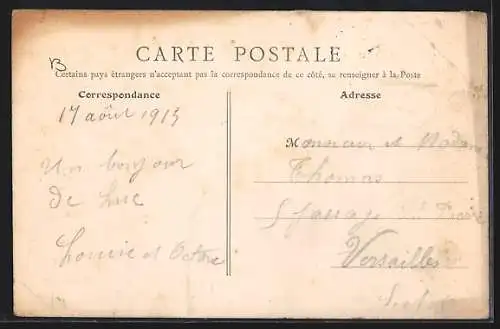 B
CARTE POSTALE
Certains pays étrangers n'acceptant pas la correspondance de ce côté, se renseigner à la Poste
Correspondance
Adresse
17 août 1915
Un bonjour
de
Louise et
Monsieur et Madame
Thomas
passage
Versailles